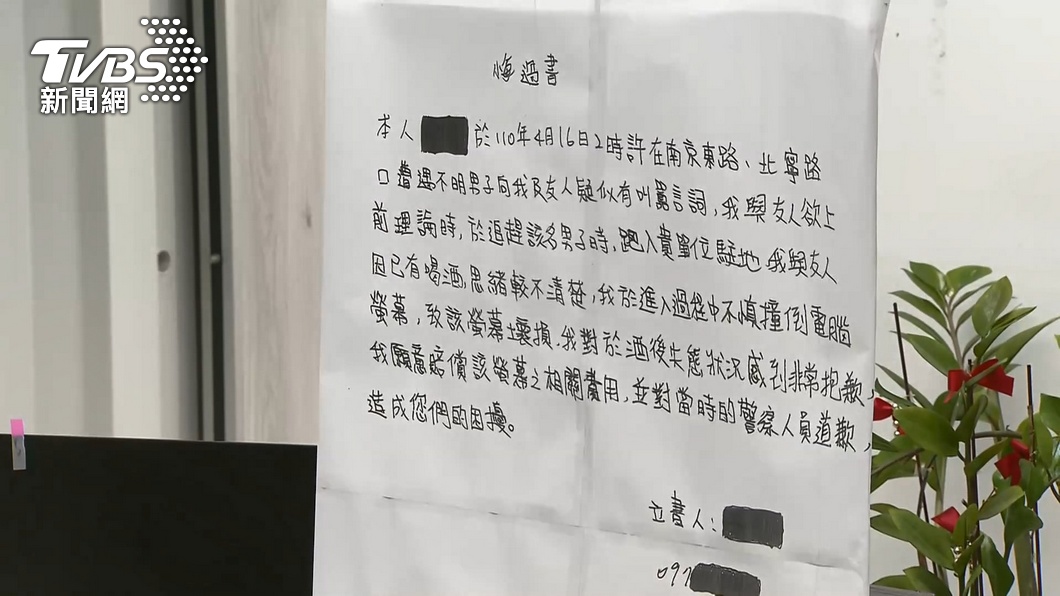 TVBS
新聞網
悔過書
本人 於110年4月16日2時許在南京東路、北寧路
口遭遇不明男子向我及友人疑似有叫罵言詞,我與友人欲上
前理論時,於追趕該名男子時,跑入貴單位駐地,我與友人
因已有喝酒,思緒較不清楚,我於進入過程中不慎撞倒電腦
螢幕,致該螢幕壞損,我對於酒後失態狀況感到非常抱歉,
我願意賠償該螢幕之相關費用,並對當時的警察人員道歉,
造成您們的困擾。
立書人:
097